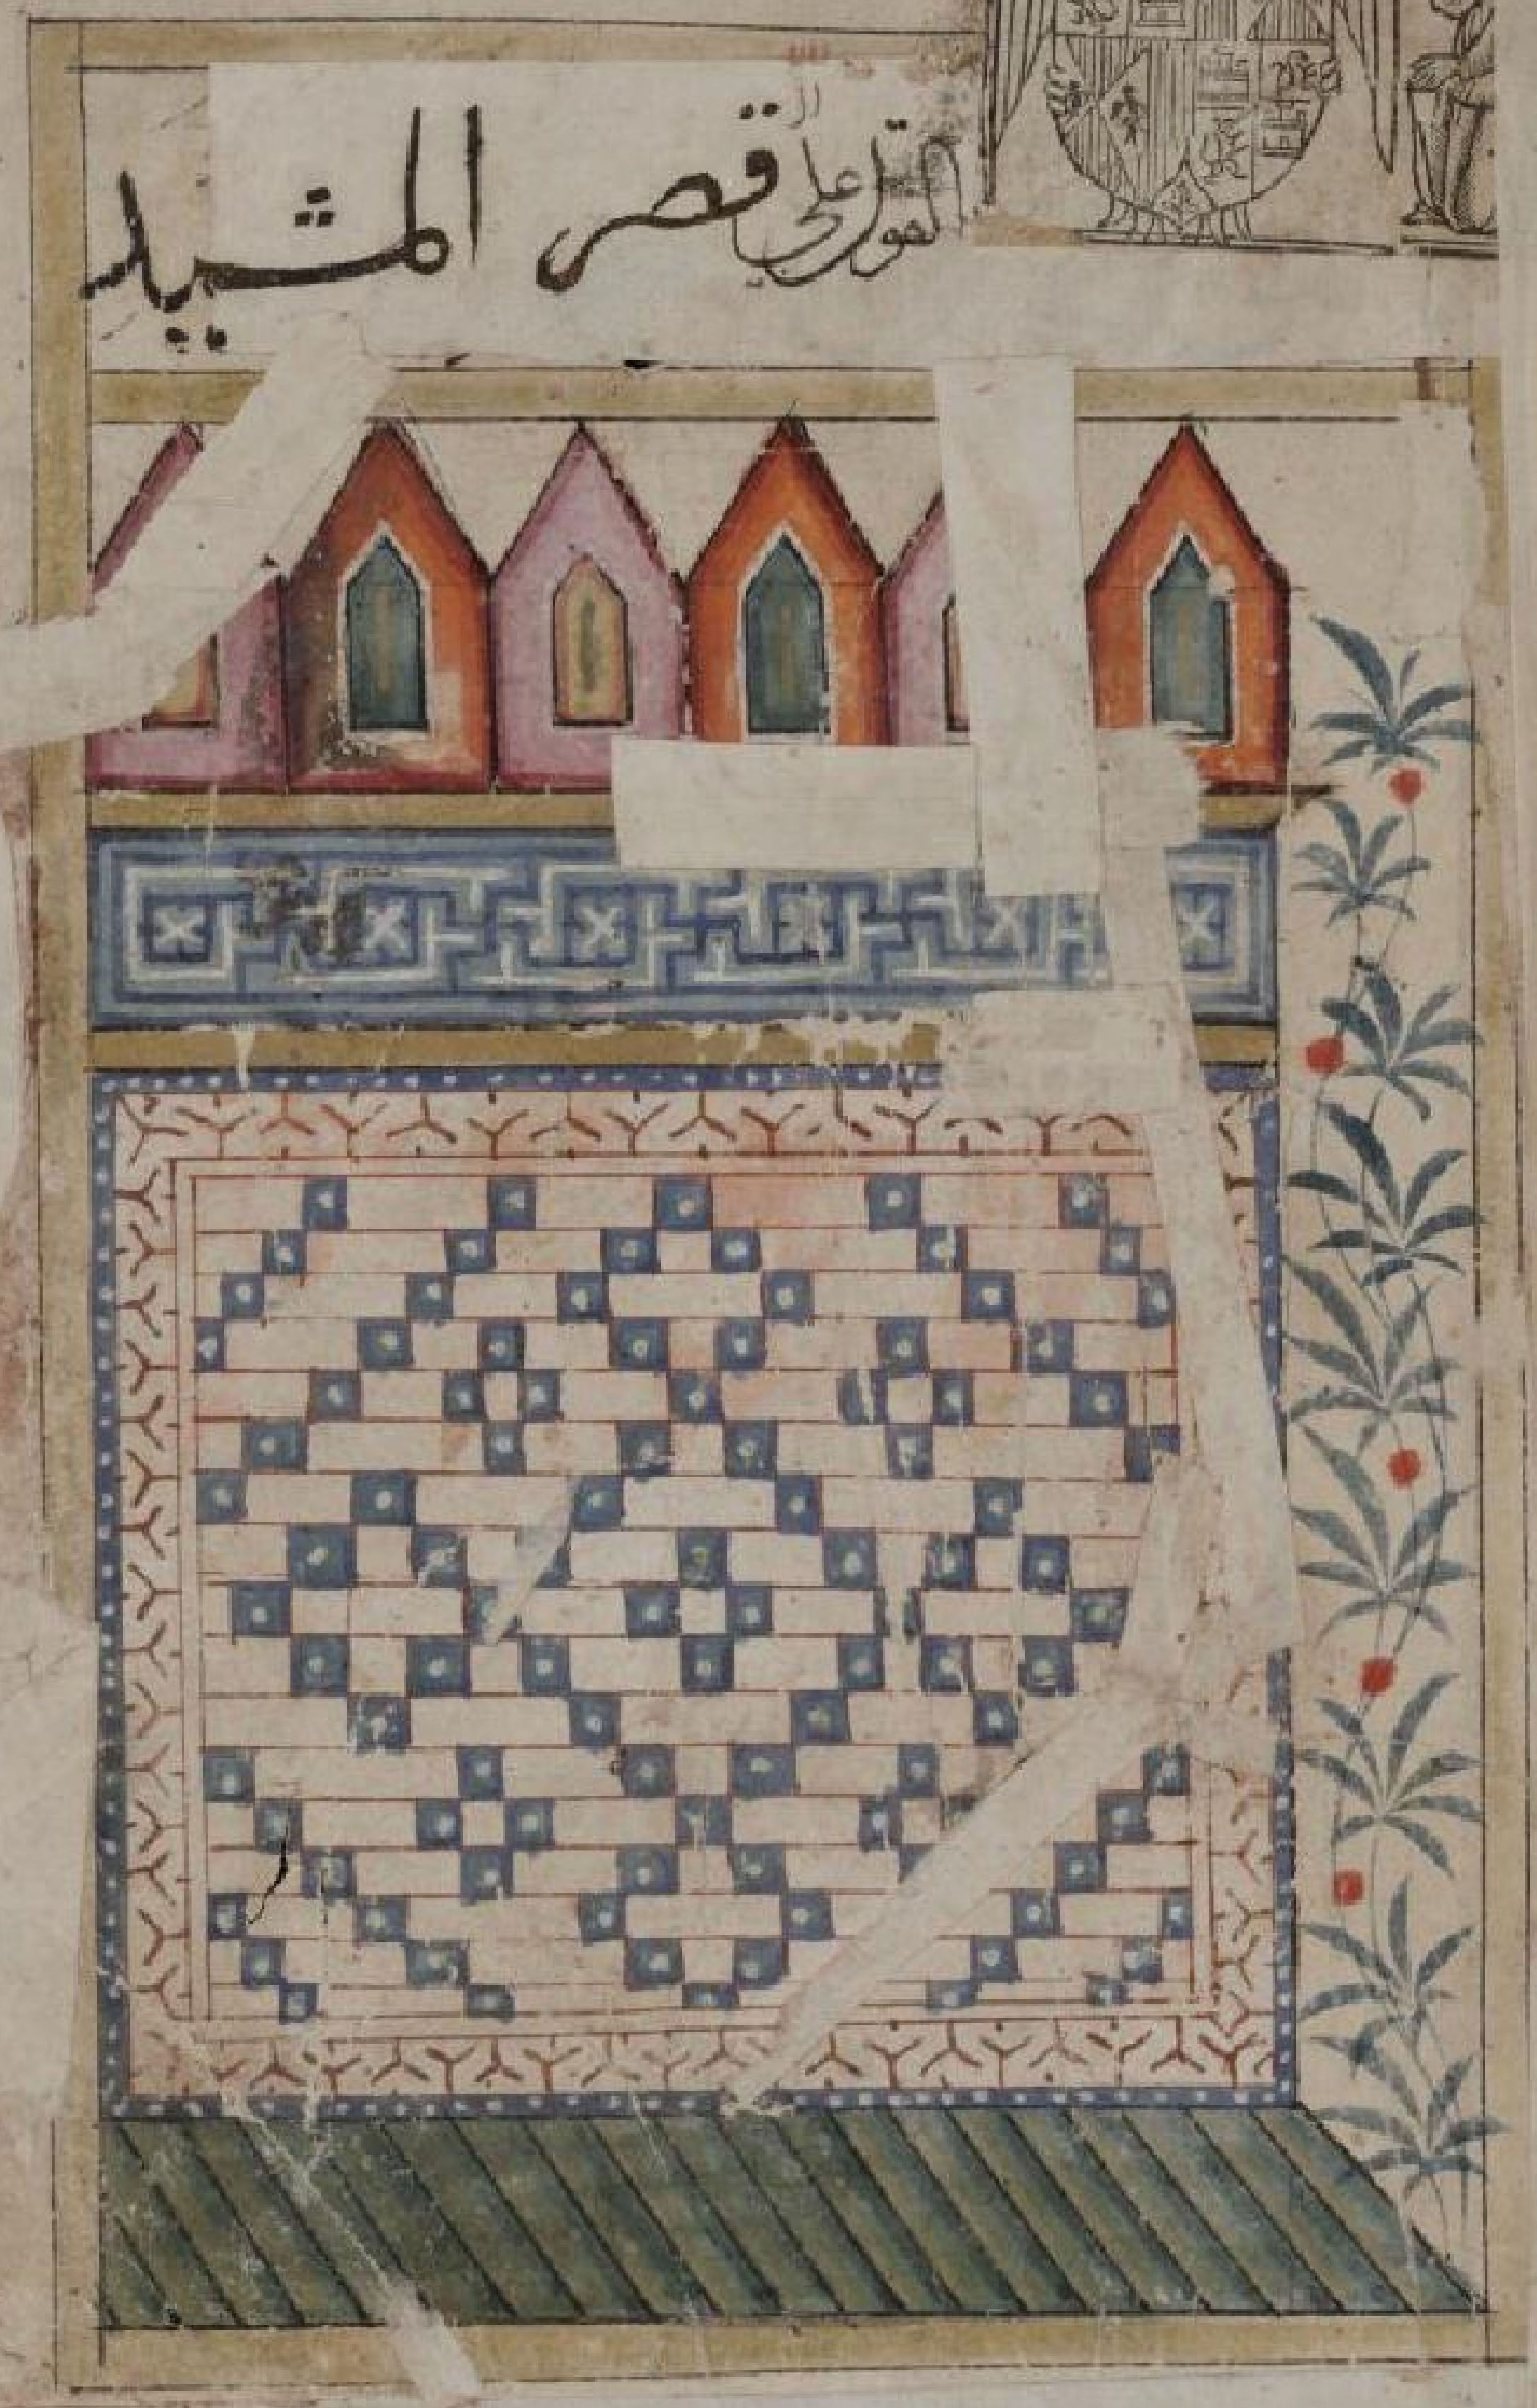 القول على قصر المشيد